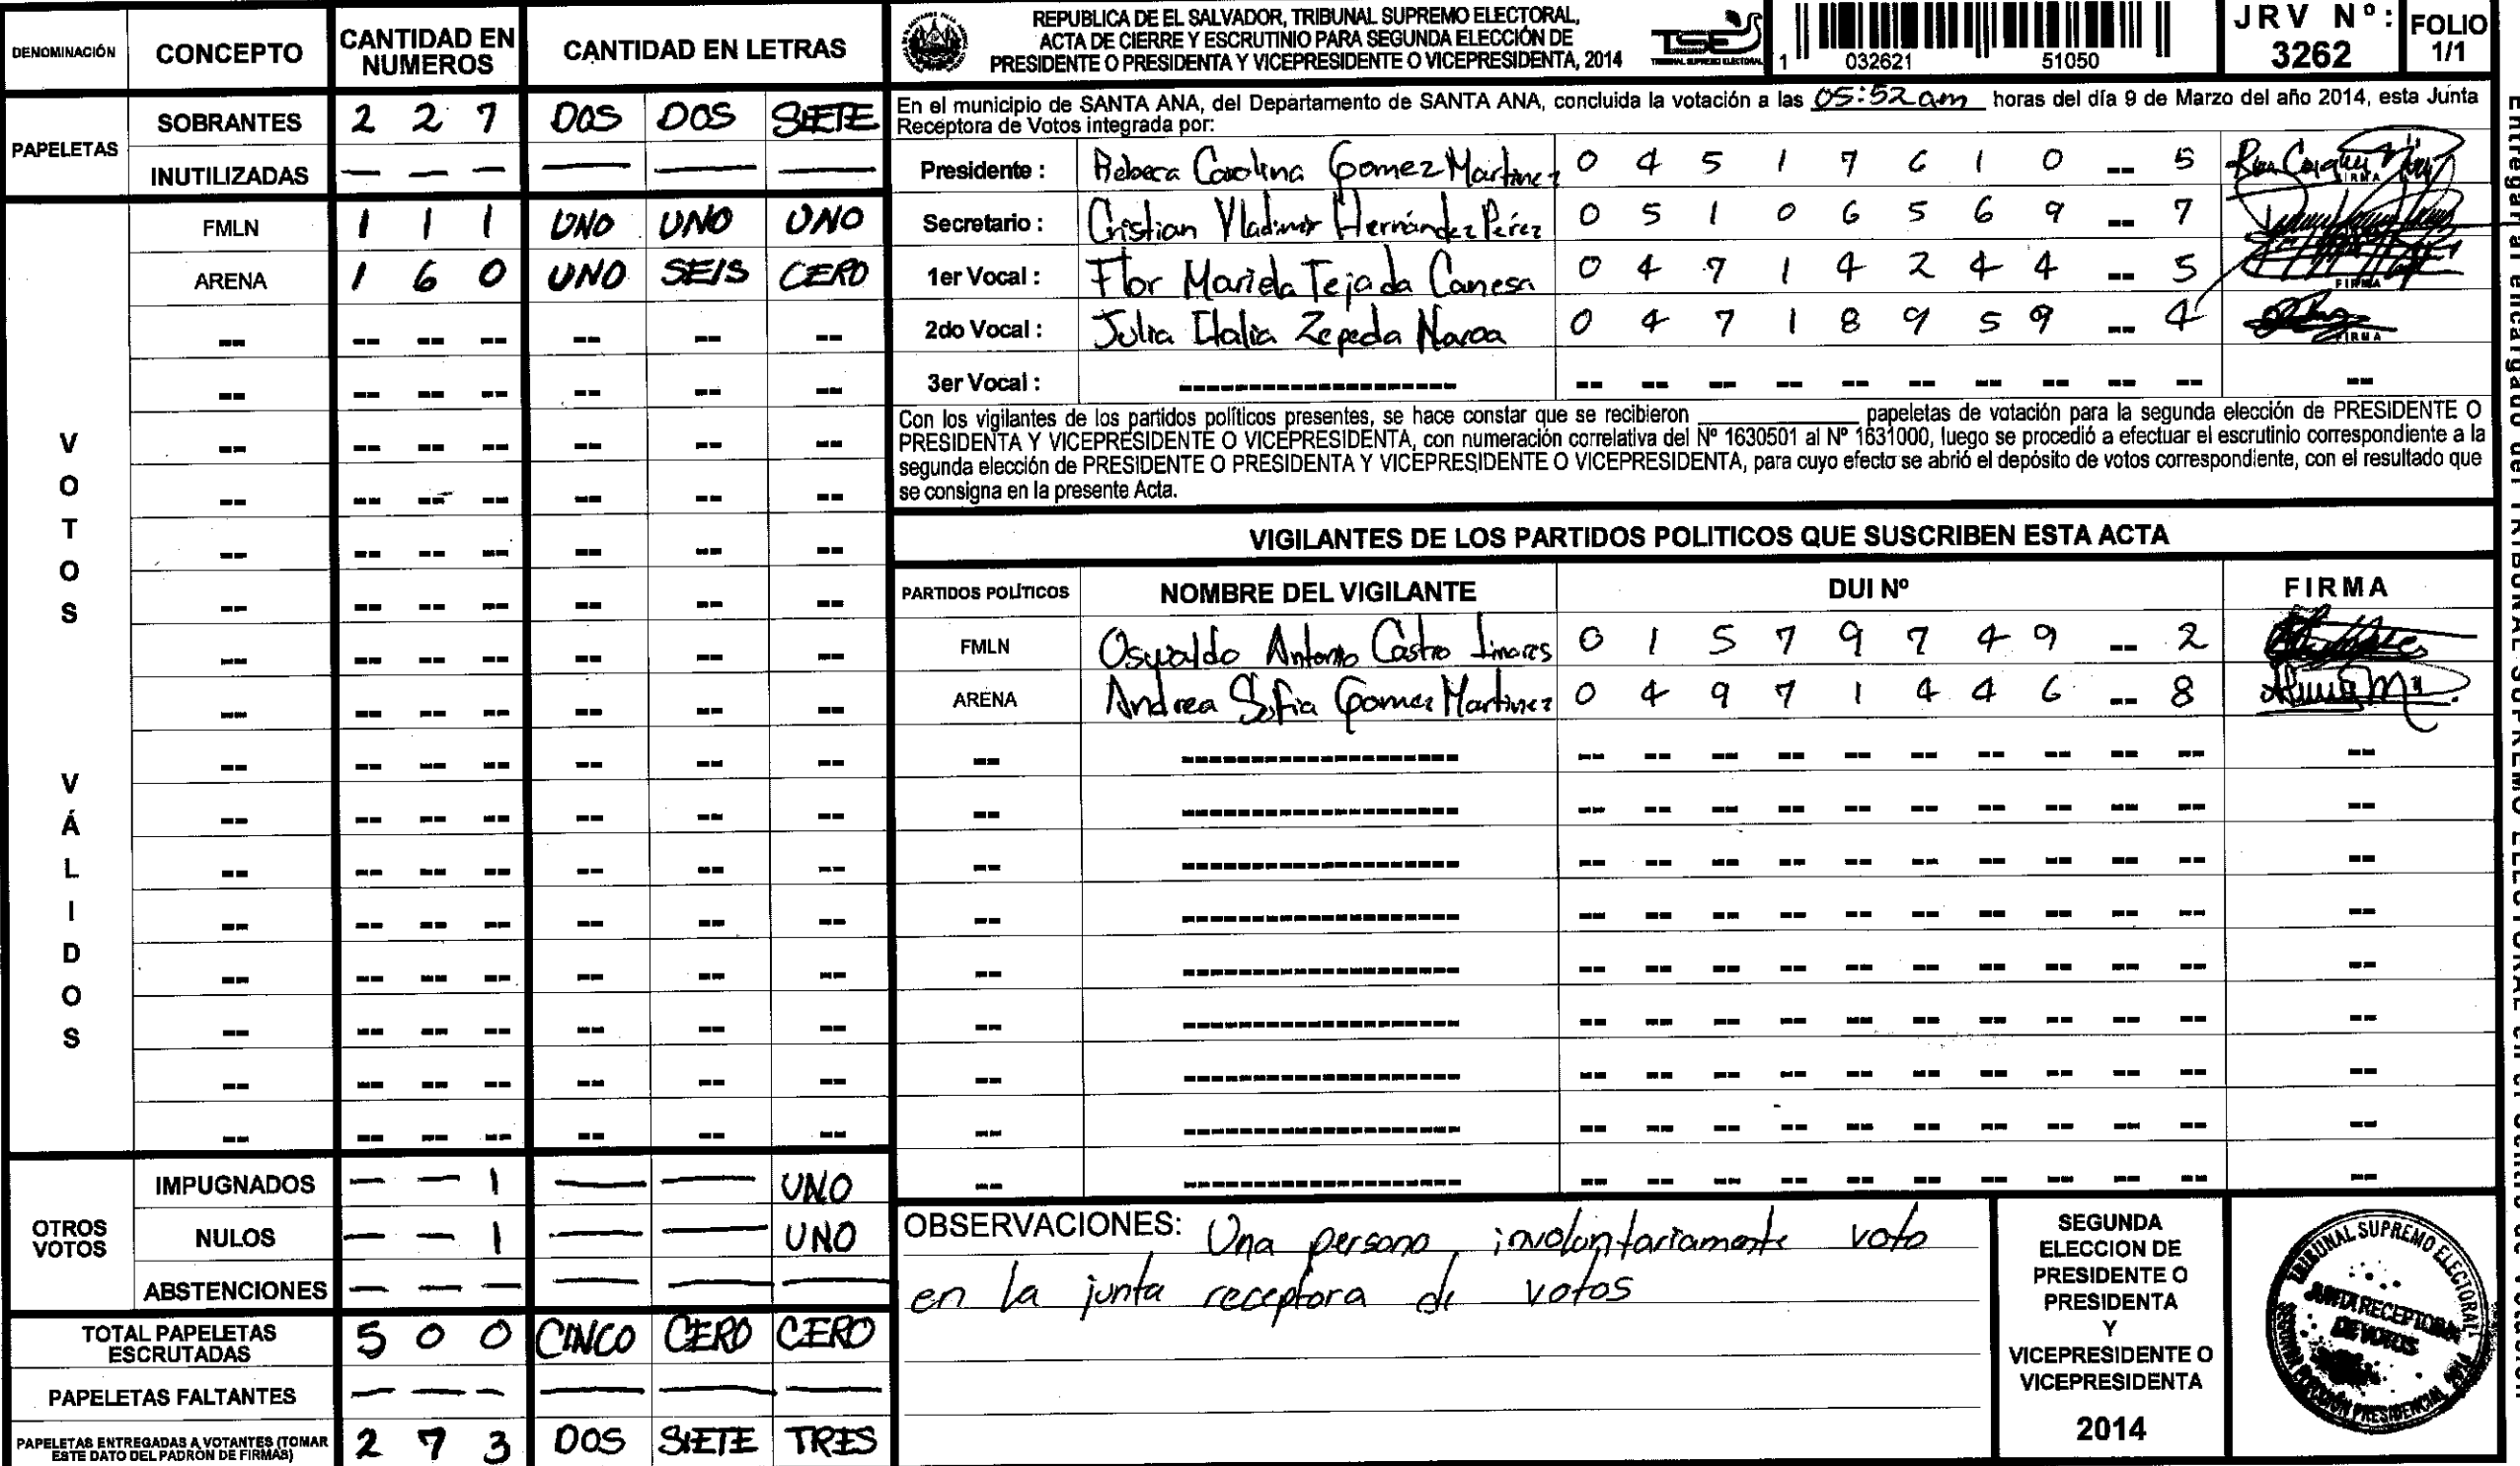 DENOMINACIÓN CONCEPTO CANTIDAD EN NUMEROS CANTIDAD EN LETRAS
PAPELETAS
SOBRANTES 2 2 7 DOS DOS SIETE
INUTILIZADAS — — — — — —
VOTOS VÁLIDOS
FMLN 1 1 1 UNO UNO UNO
ARENA 1 6 0 UNO SEIS CERO
OTROS VOTOS
IMPUGNADOS — — 1 — — UNO
NULOS — — 1 — — UNO
ABSTENCIONES — — — — — —
TOTAL PAPELETAS ESCRUTADAS 5 0 0 CINCO CERO CERO
PAPELETAS FALTANTES — — — — — —
PAPELETAS ENTREGADAS A VOTANTES (TOMAR ESTE DATO DEL PADRÓN DE FIRMAS) 2 7 3 DOS SIETE TRES
REPUBLICA DE EL SALVADOR, TRIBUNAL SUPREMO ELECTORAL,
ACTA DE CIERRE Y ESCRUTINIO PARA SEGUNDA ELECCIÓN DE
PRESIDENTE O PRESIDENTA Y VICEPRESIDENTE O VICEPRESIDENTA, 2014
TSE
TRIBUNAL SUPREMO ELECTORAL
1 032621 51050
JRV Nº: 3262
FOLIO 1/1
En el municipio de SANTA ANA, del Departamento de SANTA ANA, concluida la votación a las 05:52 am horas del día 9 de Marzo del año 2014, esta Junta
Receptora de Votos integrada por:
Presidente : Rebeca Carolina Gomez Martinez 0 4 5 1 7 6 1 0 -- 5
Secretario : Cristian Vladimir Hernández Pérez 0 5 1 0 6 5 6 9 -- 7
1er Vocal : Flor Mariela Tejada Canesa 0 4 7 1 4 2 4 4 -- 5 FIRMA
2do Vocal : Julia Idalia Zepeda 0 4 7 1 8 9 5 9 -- 4 FIRMA
3er Vocal :
Con los vigilantes de los partidos políticos presentes, se hace constar que se recibieron ________ papeletas de votación para la segunda elección de PRESIDENTE O
PRESIDENTA Y VICEPRESIDENTE O VICEPRESIDENTA, con numeración correlativa del Nº 1630501 al Nº 1631000, luego se procedió a efectuar el escrutinio correspondiente a la
segunda elección de PRESIDENTE O PRESIDENTA Y VICEPRESIDENTE O VICEPRESIDENTA, para cuyo efecto se abrió el depósito de votos correspondiente, con el resultado que
se consigna en la presente Acta.
VIGILANTES DE LOS PARTIDOS POLITICOS QUE SUSCRIBEN ESTA ACTA
PARTIDOS POLÍTICOS NOMBRE DEL VIGILANTE DUI Nº FIRMA
FMLN Osvaldo Antonio Castro Linares 0 1 5 7 9 7 4 9 -- 2
ARENA Andrea Sofia Gomez Martinez 0 4 9 7 1 4 4 6 -- 8
OBSERVACIONES: Una persona, involontariamente voto
en la junta receptora de votos
SEGUNDA
ELECCION DE
PRESIDENTE O
PRESIDENTA
Y
VICEPRESIDENTE O
VICEPRESIDENTA
2014
TRIBUNAL SUPREMO ELECTORAL
JUNTA RECEPTORA
DE VOTOS
Entregar al encargado del TRIBUNAL SUPREMO ELECTORAL en el centro de votación